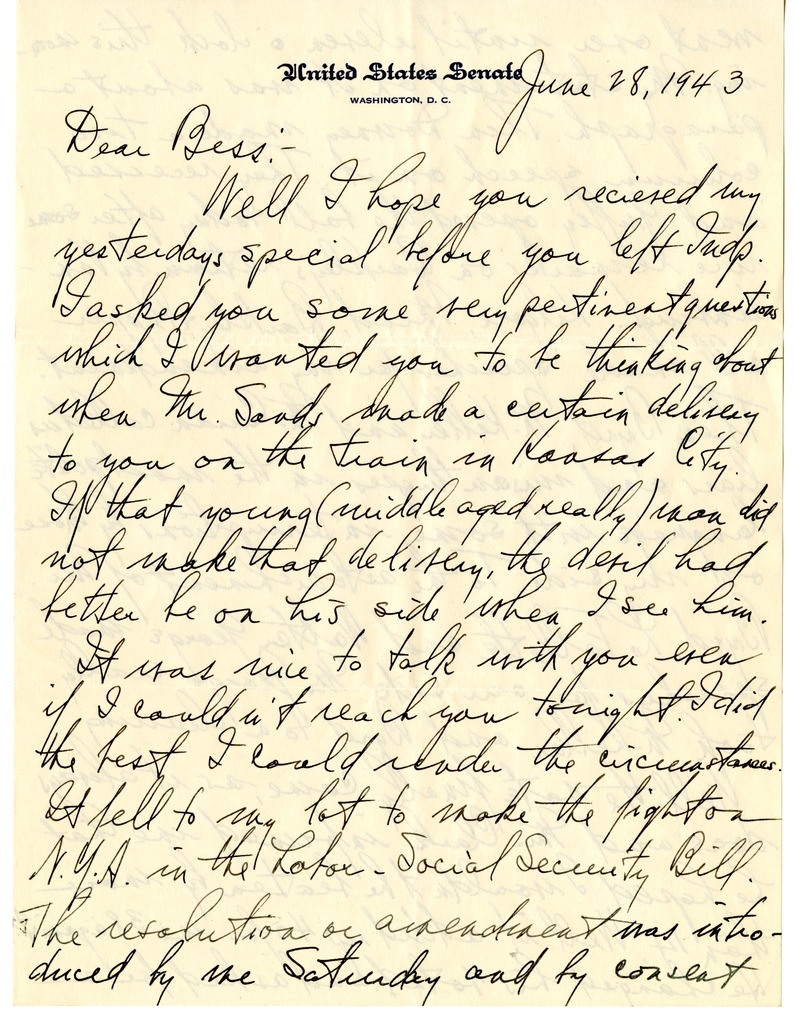 United States Senate
WASHINGTON, D. C.
June 28, 1943
Dear Bess:-
Well I hope you recieved my
yesterdays special before you left Indp.
I asked you some very pertinent questions
which I wanted you to be thinking about
when Mr. Sands made a certain delivery
to you on the train in Kansas City.
If that young (middle aged really) man did
not make that delivery, the devil had
better be on his side when I see him.
It was nice to talk with you even
if I could n't reach you tonight. I did
the best I could under the circumstances.
It fell to my lot to make the fight on
N.Y.A. in the Labor - Social Security Bill.
The resolution or amendment was intro-
duced by me Saturday and by consent